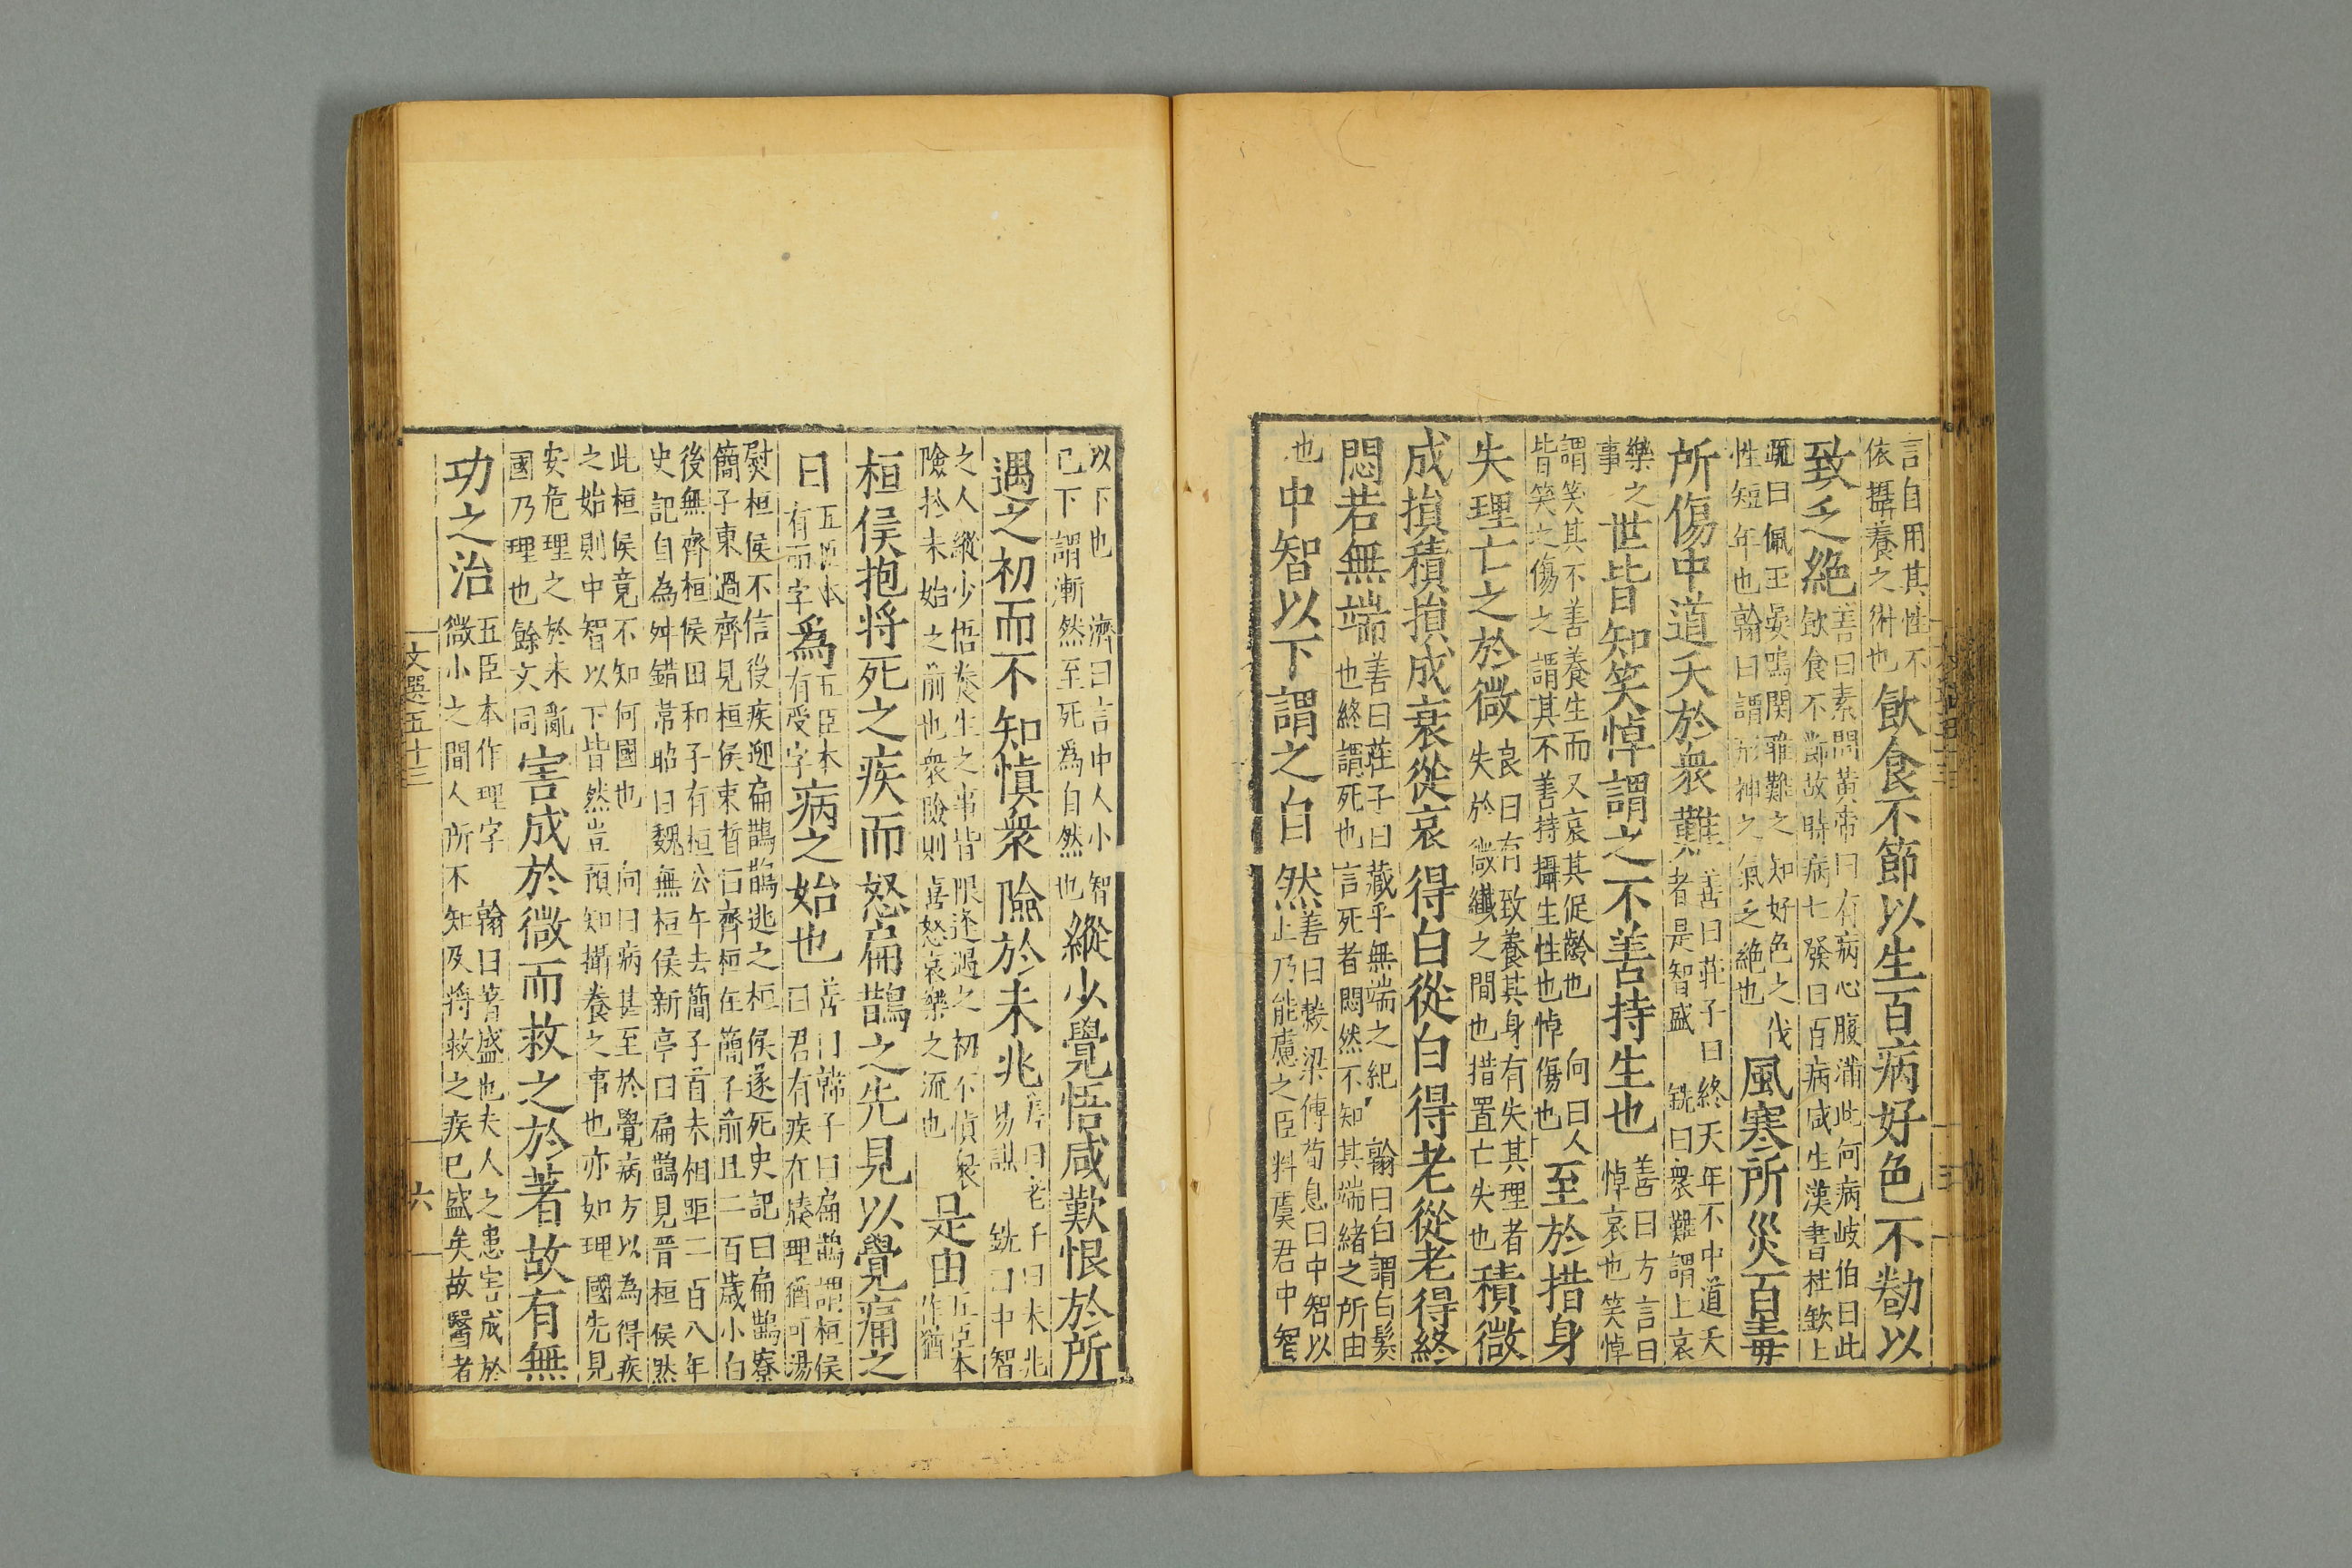 言自用其性不
依攝養之術也
飲食不節以生百病好色不勌以
致乏絕
善曰素問黃帝曰有病心腹滿此何病岐伯曰此
飲食不節故時病七發曰百病咸生漢書杜欽上
疏曰佩玉晏鳴関雎難之知好色之伐
性短年也翰曰謂形神之氣乏絕也
風寒所災百毒
所傷中道夭於衆難
善曰莊子曰終天年不中道夭
者是智盛 銑曰衆難謂上哀
樂之
事
世皆知笑悼謂之不善持生也
善曰方言曰
悼哀也笑悼
謂笑其不善養生而又哀其促齡也 向曰人
皆笑之傷之謂其不善持攝生性也悼傷也
至於措身
失理亡之於微
良曰有致養其身有失其理者
失於微纖之間也措置亡失也
積微
成損積損成衰從衰得白從白得老從老得終
悶若無端
善曰莊子曰藏乎無端之紀 翰曰白謂白髮
也終謂死也言死者悶然不知其端緒之所由
也
中智以下謂之自然
善曰穀梁傳荀息曰中智以
上乃能慮之臣料虞君中智
以下也 濟曰言中人小智
已下謂漸然至死爲自然也
縱少覺悟咸歎恨於所
遇之初而不知慎衆險於未兆
善曰老子曰未兆
易謀 銑曰中智
之人縱少悟養生之事皆恨逐遇之初不慎衆
險於未始之前也衆險則喜怒哀樂之流也
是由
五臣本
作猶
桓侯抱將死之疾而怒扁鵲之先見以覺痛之
日
五臣本
有而字
爲
五臣本
有受字
病之始也
善曰韓子曰扁鵲謂桓侯
曰君有疾在腠理猶可湯
熨桓侯不信後疾迎扁鵲鵲逃之桓侯遂死史記曰扁鵲療
簡子東過齊見桓侯束晳曰齊桓在簡子前且二百歲小白
後無齊桓侯田和子有桓公午去簡子首末相距二百八年
史記自為舛錯韋昭曰魏無桓侯新亭曰扁鵲見晋桓侯然
此桓侯竟不知何國也 向曰病甚至於覺病方以為得疾
之始則中智以下皆然豈預知攝養之事也亦如理國先見
安危理之於未亂
國乃理也餘文同
害成於微而救之於著故有無
功之治
五臣本作理字 翰曰著盛也夫人之患害成於
微小之間人所不知及將救之疾已盛矣故醫者
文選五十三
六